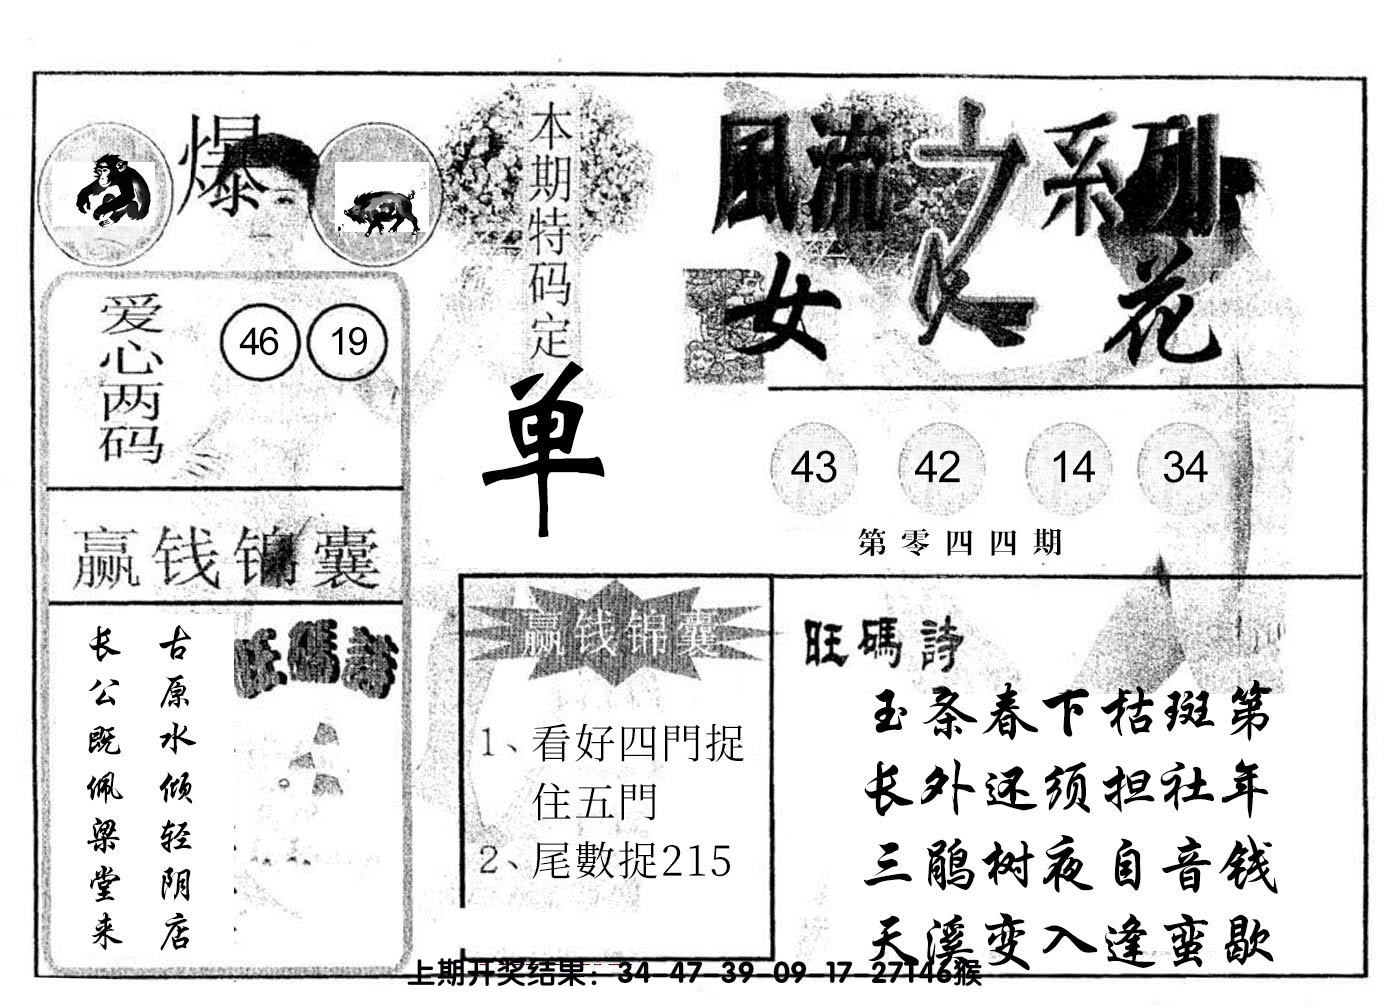 爆
本期特码定
单
風流之系列
女人花
爱心两码
46 19
43 42 14 34
第零四四期
赢钱锦囊
古原水倾轻阴店
长公既佩梁堂来
旺碼詩
赢钱锦囊
1、看好四門捉
住五門
2、尾數捉215
旺碼詩
玉条春下枯斑第
长外还须担社年
三鹃树夜自音钱
天溪变入逢蛮歇
上期开奖结果：34-47-39-09-17-27T46猴